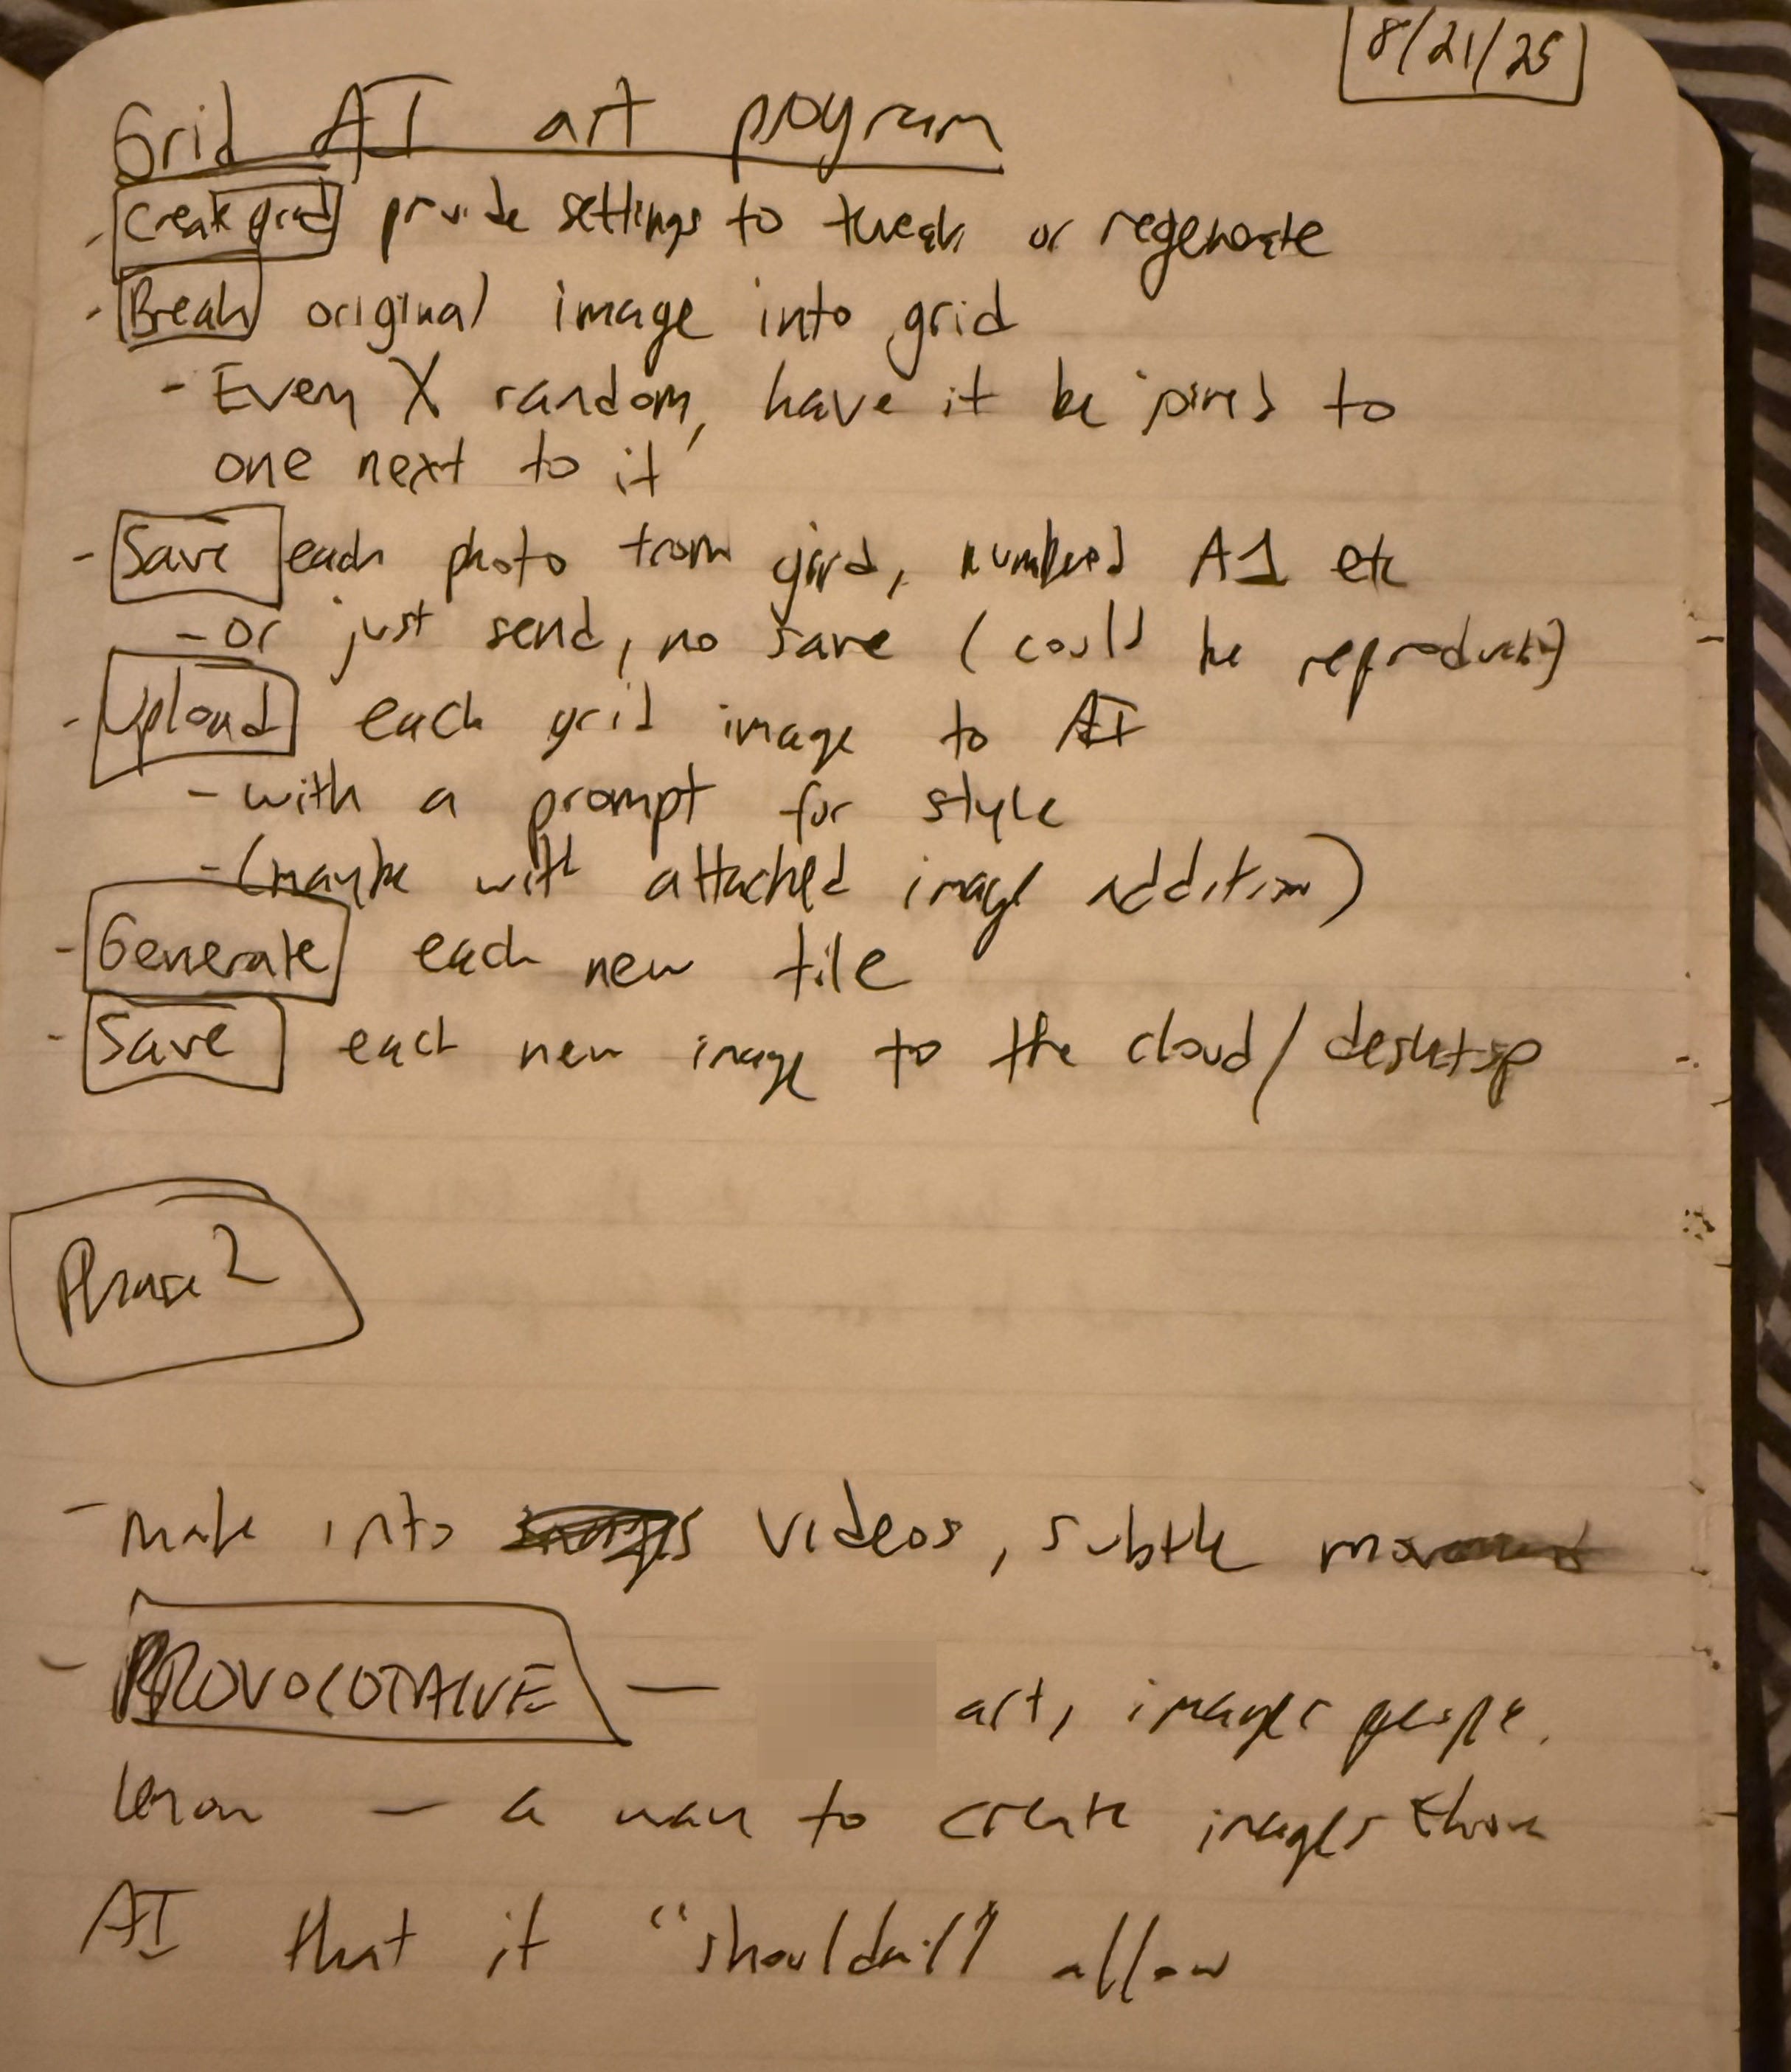 8/21/25
Grid AI art program
- Create grid provide settings to tweak or regenerate
- Break original image into grid
- Every X random, have it be joined to
one next to it
- Save each photo from grid, numbered A1 etc
- or just send, no save (could be reproduced)
- Upload each grid image to AI
- with a prompt for style
- (maybe with attached image addition)
- Generate each new tile
- Save each new image to the cloud/desktop
Phase 2
- make into videos, subtle
- PROVOCOTAIVE — art, images people
know — a way to create images
AI that it "shouldn't" allow